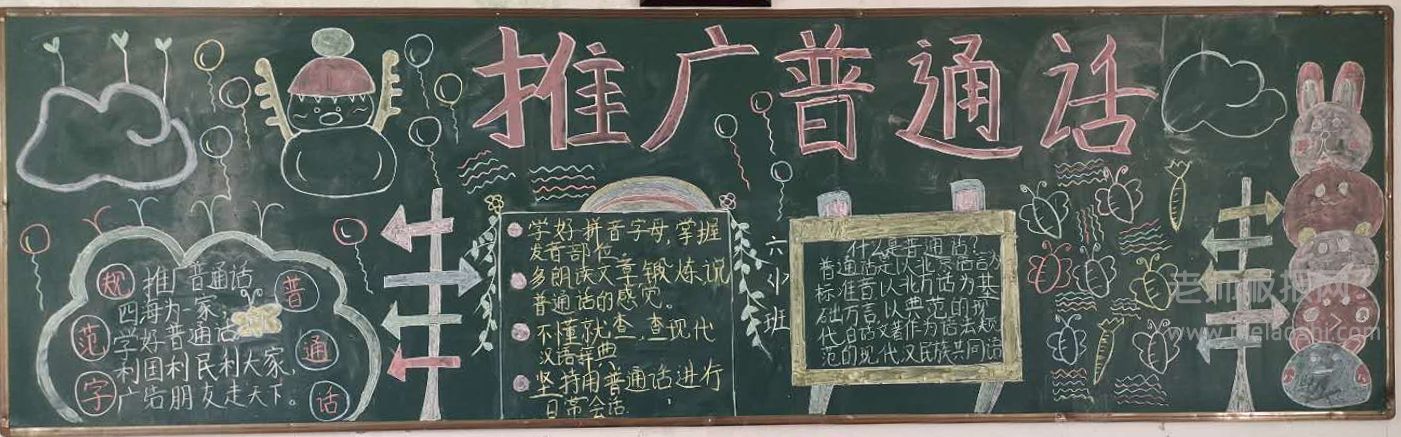 推广普通话
规范字
普通话
推广普通话
四海为一家，
学好普通话
利国利民利大家，
广告朋友走天下。
学好拼音字母，掌握
发音部位
多朗读文章，锻炼说
普通话的感觉。
不懂就查，查现代
汉语辞典
坚持用普通话进行
日常会话
六(1)班
什么是普通话？
普通话是以北京语言为
标准音，以北方话为基
础方言，以典范的现
代白话文著作为语法规
范的现代汉民族共同语
老师板报网